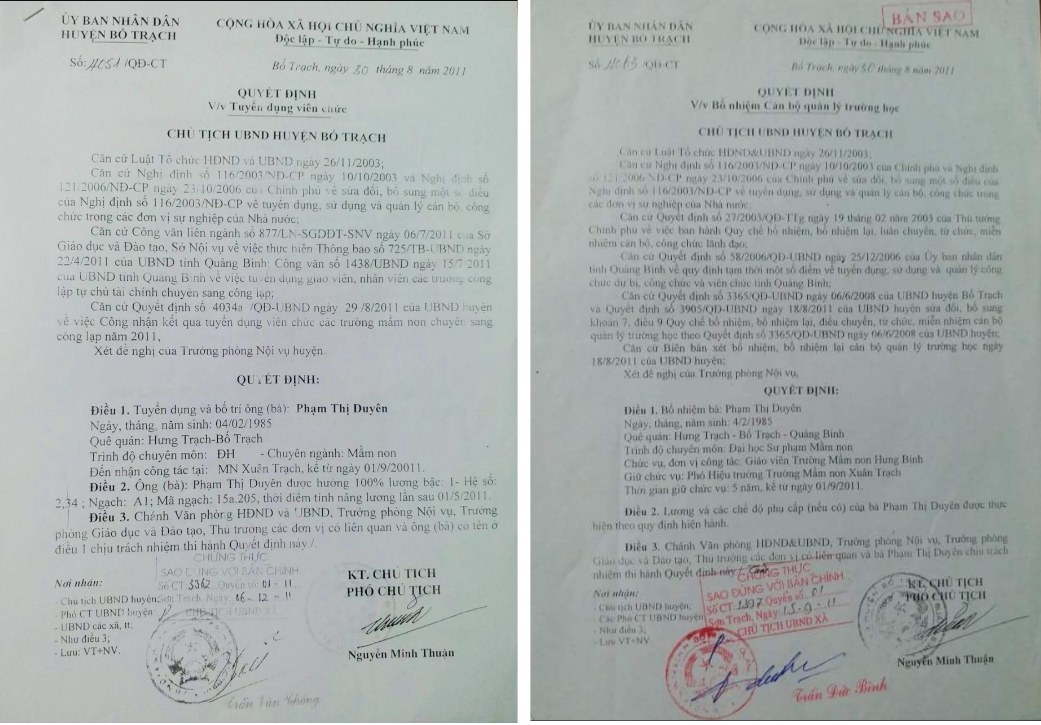 ỦY BAN NHÂN DÂN
HUYỆN BỐ TRẠCH
CỘNG HÒA XÃ HỘI CHỦ NGHĨA VIỆT NAM
Độc lập - Tự do - Hạnh phúc
Số: 4051 /QĐ-CT
Bố Trạch, ngày 30 tháng 8 năm 2011
QUYẾT ĐỊNH
V/v Tuyển dụng viên chức
CHỦ TỊCH UBND HUYỆN BỐ TRẠCH
Căn cứ Luật Tổ chức HĐND và UBND ngày 26/11/2003;
Căn cứ Nghị định số 116/2003/NĐ-CP ngày 10/10/2003 và Nghị định số
121/2006/NĐ-CP ngày 23/10/2006 của Chính phủ về sửa đổi, bổ sung một số điều
của Nghị định số 116/2003/NĐ-CP về tuyển dụng, sử dụng và quản lý cán bộ, công
chức trong các đơn vị sự nghiệp của Nhà nước;
Căn cứ Công văn liên ngành số 877/LN-SGDĐT-SNV ngày 06/7/2011 của Sở
Giáo dục và Đào tạo, Sở Nội vụ về việc thực hiện Thông báo số 725/TB-UBND ngày
22/4/2011 của UBND tỉnh Quảng Bình; Công văn số 1438/UBND ngày 15/7/2011
của UBND tỉnh Quảng Bình về việc tuyển dụng giáo viên, nhân viên các trường công
lập tự chủ tài chính chuyển sang công lập;
Căn cứ Quyết định số 4034a /QĐ-UBND ngày 29 /8/2011 của UBND huyện
về việc Công nhận kết quả tuyển dụng viên chức các trường mầm non chuyển sang
công lập năm 2011,
Xét đề nghị của Trưởng phòng Nội vụ huyện.
QUYẾT ĐỊNH:
Điều 1. Tuyển dụng và bố trí ông (bà): Phạm Thị Duyên
Ngày, tháng, năm sinh: 04/02/1985
Quê quán: Hưng Trạch-Bố Trạch
Trình độ chuyên môn: ĐH - Chuyên ngành: Mầm non
Đến nhận công tác tại: MN Xuân Trạch, kể từ ngày 01/9/20011.
Điều 2. Ông (bà): Phạm Thị Duyên được hưởng 100% lương bậc: 1- Hệ số:
2,34 ; Ngạch: A1; Mã ngạch: 15a.205, thời điểm tính nâng lương lần sau 01/5/2011.
Điều 3. Chánh Văn phòng HĐND và UBND, Trưởng phòng Nội vụ, Trưởng
phòng Giáo dục và Đào tạo, Thủ trưởng các đơn vị có liên quan và ông (bà) có tên ở
điều 1 chịu trách nhiệm thi hành Quyết định này./.
CHỨNG THỰC
SAO ĐÚNG VỚI BẢN CHÍNH
Số CT 5362 Quyển số 01 - 11
Sơn Trạch, Ngày 06 - 12 - 11
CHỦ TỊCH UBND XÃ
Nơi nhận:
- Chủ tịch UBND huyện;
- Phó CT UBND huyện;
- UBND các xã, tt;
- Như điều 3;
- Lưu: VT+NV.
KT. CHỦ TỊCH
PHÓ CHỦ TỊCH
Nguyễn Minh Thuận
Trần Văn Thắng
BẢN SAO
ỦY BAN NHÂN DÂN
HUYỆN BỐ TRẠCH
CỘNG HÒA XÃ HỘI CHỦ NGHĨA VIỆT NAM
Độc lập - Tự do - Hạnh phúc
Số 4063 /QĐ-CT
Bố Trạch, ngày 30 tháng 8 năm 2011
QUYẾT ĐỊNH
V/v Bổ nhiệm Cán bộ quản lý trường học
CHỦ TỊCH UBND HUYỆN BỐ TRẠCH
Căn cứ Luật Tổ chức HĐND&UBND ngày 26/11/2003;
Căn cứ Nghị định số 116/2003/NĐ-CP ngày 10/10/2003 của Chính phủ và Nghị định
số 121/2006/NĐ-CP ngày 23/10/2006 của Chính phủ về sửa đổi, bổ sung một số điều của
Nghị định số 116/2003/NĐ-CP về tuyển dụng, sử dụng và quản lý cán bộ, công chức trong
các đơn vị sự nghiệp của Nhà nước.
Căn cứ Quyết định số 27/2003/QĐ-TTg ngày 19 tháng 02 năm 2003 của Thủ tướng
Chính phủ về việc ban hành Quy chế bổ nhiệm, bổ nhiệm lại, luân chuyển, từ chức, miễn
nhiệm cán bộ, công chức lãnh đạo;
Căn cứ Quyết định số 58/2006/QĐ-UBND ngày 25/12/2006 của Ủy ban nhân dân
tỉnh Quảng Bình về quy định tạm thời một số điểm về tuyển dụng, sử dụng và quản lý công
chức dự bị, công chức và viên chức tỉnh Quảng Bình;
Căn cứ Quyết định số 3365/QĐ-UBND ngày 06/6/2008 của UBND huyện Bố Trạch
và Quyết định số 3905/QĐ-UBND ngày 18/8/2011 của UBND huyện sửa đổi, bổ sung
khoản 7, điều 9 Quy chế bổ nhiệm, bổ nhiệm lại, điều chuyển, từ chức, miễn nhiệm cán bộ
quản lý trường học theo Quyết định số 3365/QĐ-UBND ngày 06/6/2008 của UBND huyện;
Căn cứ Biên bản xét bổ nhiệm, bổ nhiệm lại cán bộ quản lý trường học ngày
18/8/2011 của UBND huyện;
Xét đề nghị của Trưởng phòng Nội vụ,
QUYẾT ĐỊNH:
Điều 1. Bổ nhiệm bà: Phạm Thị Duyên
Ngày, tháng, năm sinh: 4/2/1985
Quê quán: Hưng Trạch - Bố Trạch - Quảng Bình
Trình độ chuyên môn: Đại học Sư phạm Mầm non
Chức vụ, đơn vị công tác: Giáo viên Trường Mầm non Hưng Bình
Giữ chức vụ: Phó Hiệu trưởng Trường Mầm non Xuân Trạch
Thời gian giữ chức vụ: 5 năm, kể từ ngày 01/9/2011.
Điều 2. Lương và các chế độ phụ cấp (nếu có) của bà Phạm Thị Duyên được thực
hiện theo quy định hiện hành.
Điều 3. Chánh Văn phòng HĐND&UBND, Trưởng phòng Nội vụ, Trưởng phòng
Giáo dục và Đào tạo, Thủ trưởng các đơn vị có liên quan và bà Phạm Thị Duyên chịu trách
nhiệm thi hành Quyết định này./.
CHỨNG THỰC
SAO ĐÚNG VỚI BẢN CHÍNH
Số CT 1397 Quyển số 01
Sơn Trạch, Ngày 15-9-11
CHỦ TỊCH UBND XÃ
Nơi nhận:
- Chủ tịch UBND huyện;
- Các Phó CT UBND huyện;
- Như điều 3;
- Lưu VT+NV.
KT. CHỦ TỊCH
PHÓ CHỦ TỊCH
Nguyễn Minh Thuận
Trần Đức Bình